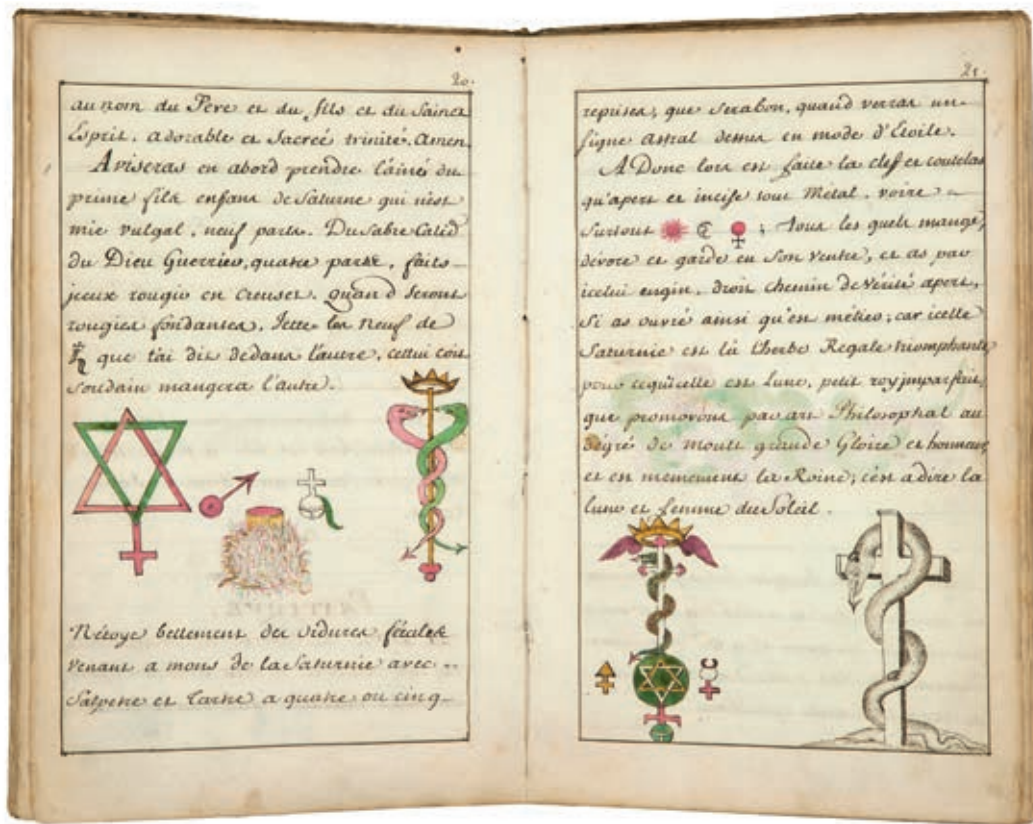 20.
au nom du Pere et du fils et du Sainct
Esprit. adorable et Sacreé trinité. Amen
Aviseras en abord prendre l'ainé du
prime fils enfans de Saturne qui n'est
mie vulgal, neuf parts. Du Sabre Calid
du Dieu Guerrier, quatre parts, faits
jceux rougir en Creuset. quand seront
rougies fondantes, Jette les neuf de
♄ que t'ai dis dedans l'autre, cettui cois
soudain mangera l'autre.
Nétoye bellement des ordures fécales
venant a mons de la Saturnie avec
Salpetre et tartre a quatre ou cinq
21.
reprises, que Serabon, quand verras un
Signe astral dessus en mode d'Etoile.
A Donc lors est faite la clef et coutelas
qu'apert et incise tout Métal, voire
Surtout ☉ ☾ ♀; tous les quels mange,
dévore et garde en Son ventre, et as par
icelui engin, droit chemin de Vérité apert,
Si as ouvré ainsi qu'en métier; car icelle
Saturnie est là l'herbe Regale triomphante,
pour ce qu'icelle est Lune, petit roy jmparfait,
que promovons par art Philosophal au
dégré de moult grande Gloire et honneur,
et en mememens la Roine; c'en a dire la
lune et femme du Soleil.